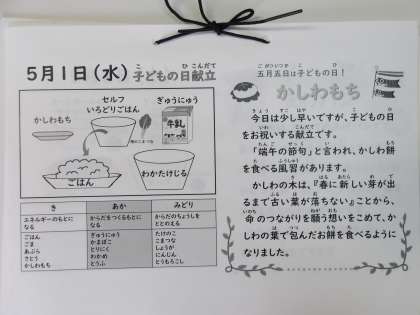 5月1日(水)子どもの日献立
セルフ
いろどりごはん
ぎゅうにゅう
かしわもち
牛乳
ごはん
わかたけじる
き
あか
みどり
エネルギーのもとに
なる
からだをつくるもとに
なる
からだのちょうしを
ととのえる
ごはん
ごま
あぶら
さとう
かしわもち
ぎゅうにゅう
かまぼこ
とりにく
わかめ
とうふ
たけのこ
こまつな
しょうが
にんじん
とうもろこし
五月五日は子どもの日!
かしわもち
今日は少し早いですが、子どもの日
をお祝いする献立です。
「端午の節句」と言われ、かしわ餅
を食べる風習があります。
かしわの木は、『春に新しい芽が出
るまで古い葉が落ちない』ことから、
命のつながりを願う想いをこめて、か
しわの葉で包んだお餅を食べるように
なりました。